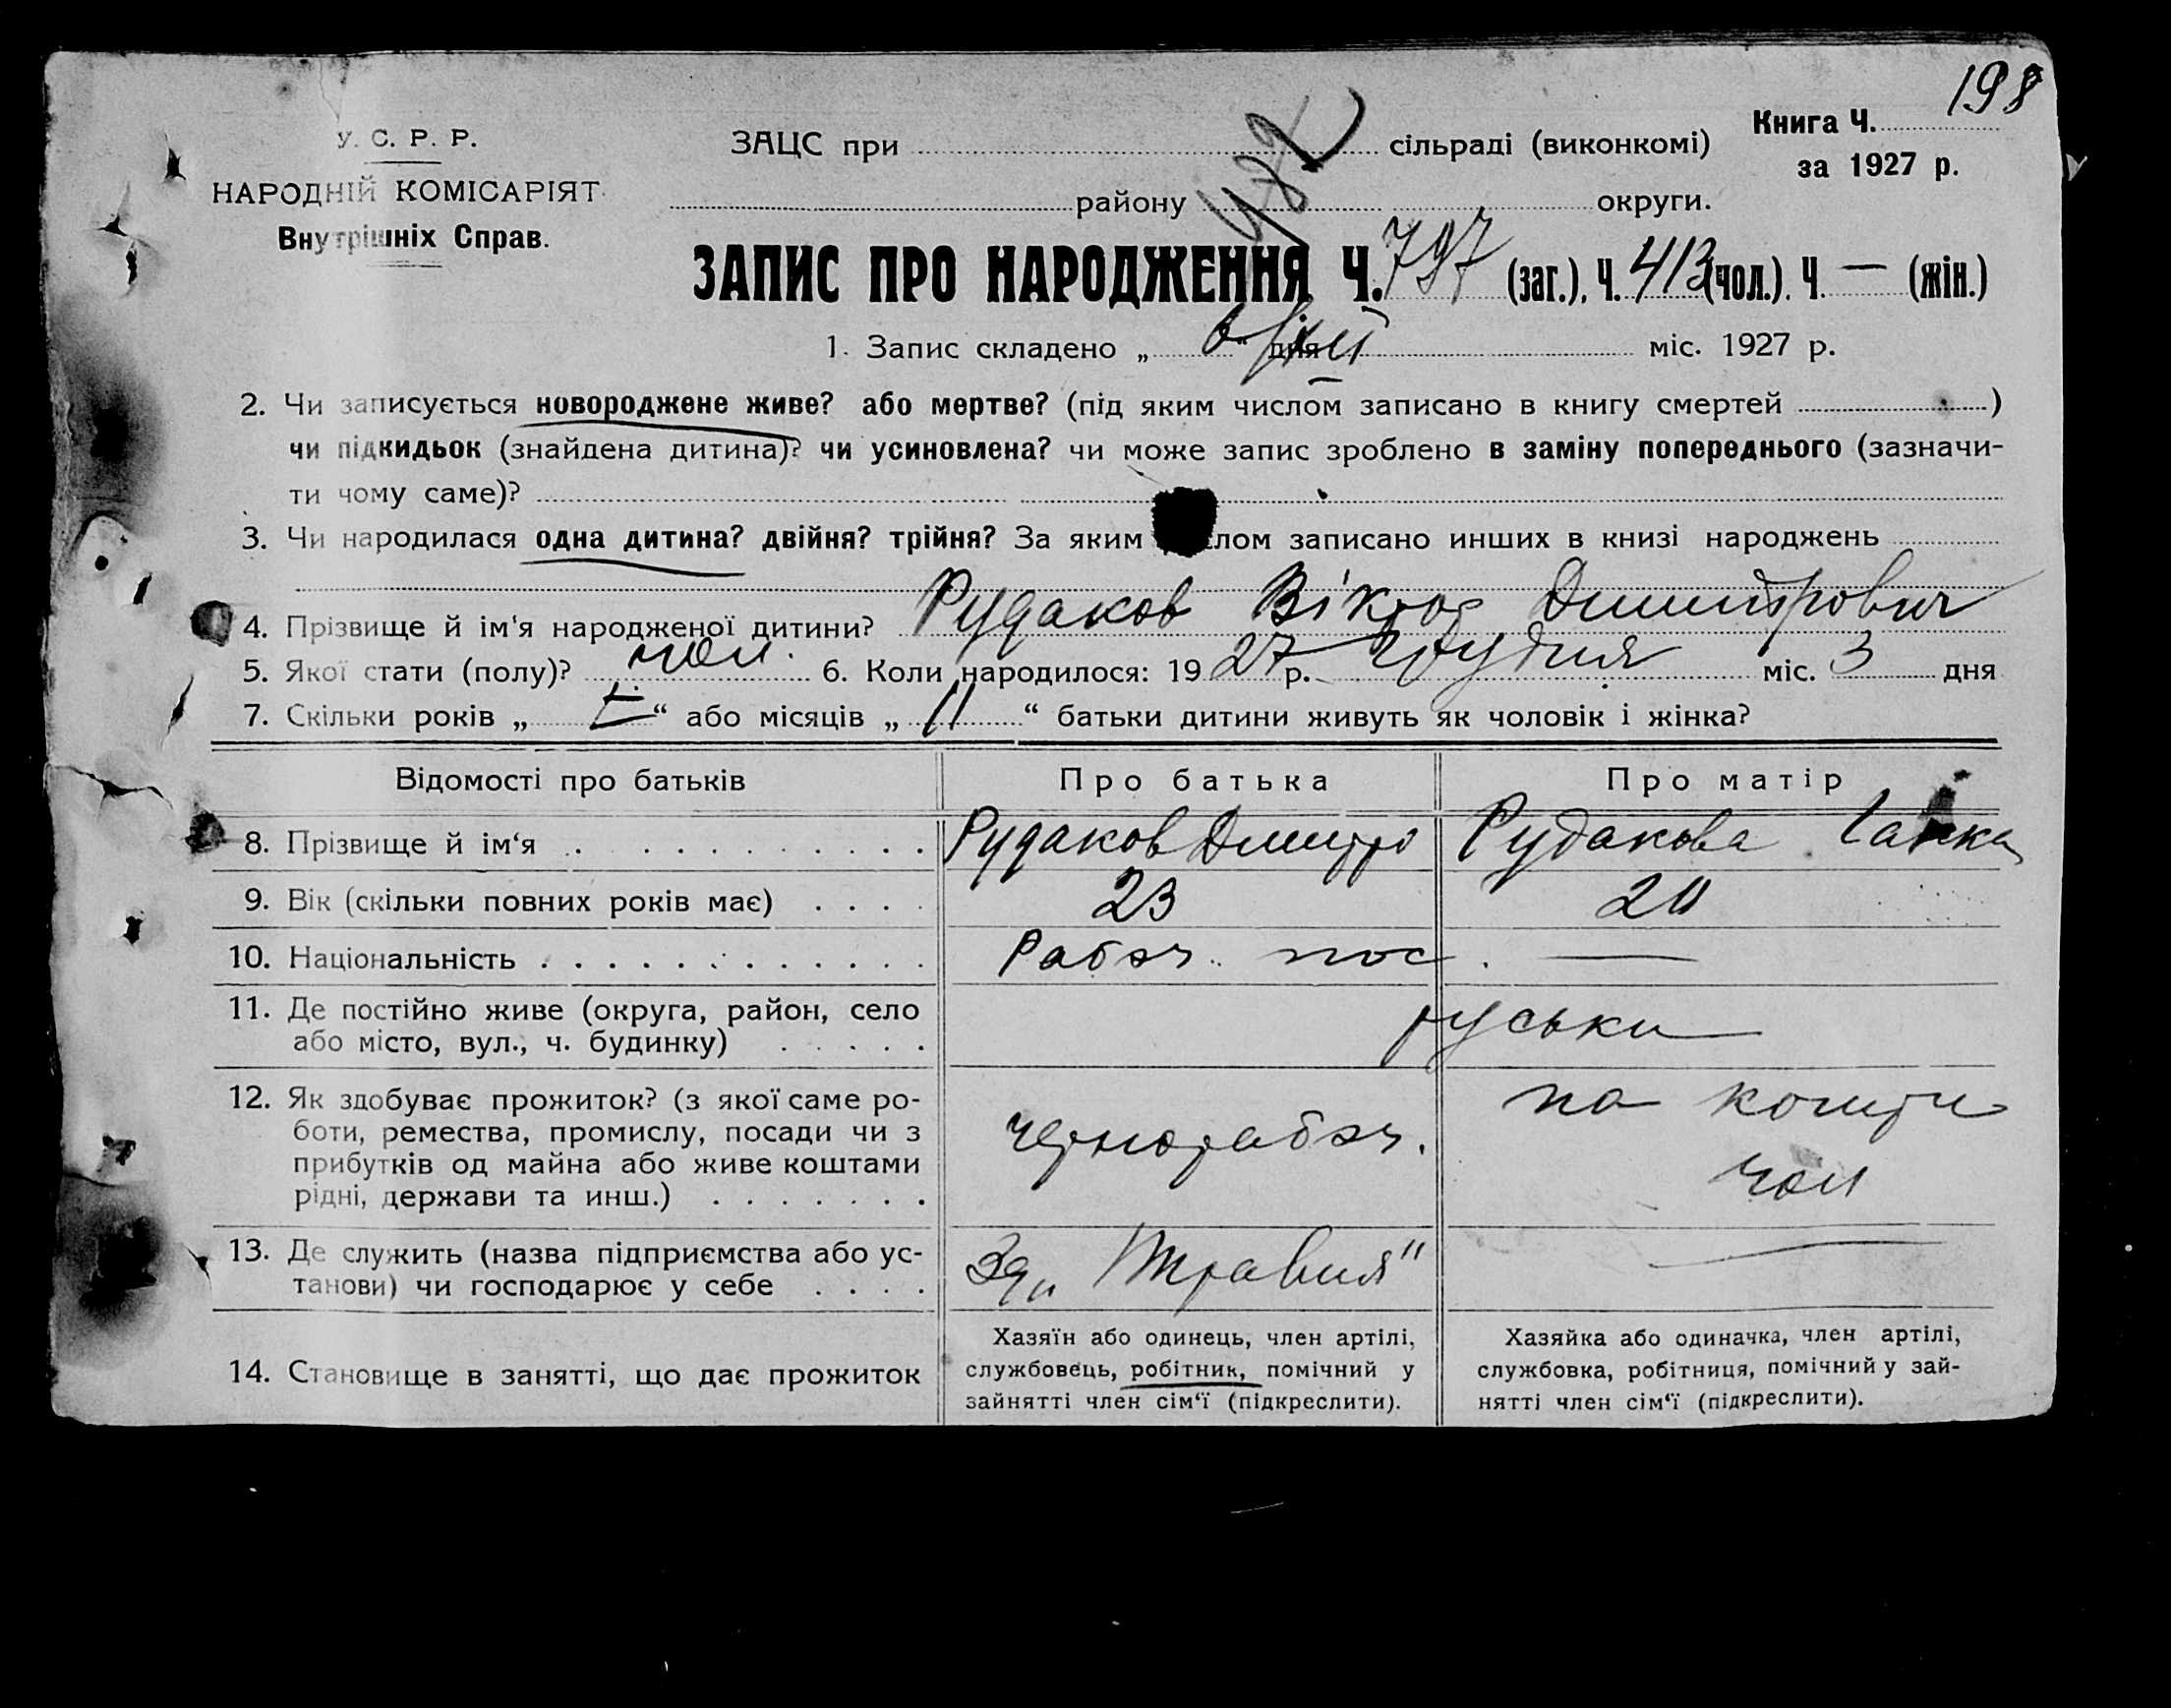 198
У. С. Р. Р.
НАРОДНІЙ КОМІСАРІЯТ
Внутрішніх Справ.
ЗАЦС при сільраді (виконкомі)
Книга Ч.
за 1927 р.
району округи.
ЗАПИС ПРО НАРОДЖЕННЯ Ч. 797 (заг.), Ч. 413 (чол.). Ч. — (жін.)
1. Запис складено „ 6 “ дня міс. 1927 р.
2. Чи записується новороджене живе? або мертве? (під яким числом записано в книгу смертей )
чи підкидьок (знайдена дитина)? чи усиновлена? чи може запис зроблено в заміну попереднього (зазначи-
ти чому саме)?
3. Чи народилася одна дитина? двійня? трійня? За яким лом записано инших в книзі народжень
4. Прізвище й ім'я народженої дитини? Рудаков Віктор Димитрович
5. Якої стати (полу)? чол. 6. Коли народилося: 1927 р. Грудня міс. 3 дня
7. Скільки років „ “ або місяців „ 11 “ батьки дитини живуть як чоловік і жінка?
Відомості про батьків Про батька Про матір
8. Прізвище й ім‘я Рудаков Дмитро Рудакова Ганна
9. Вік (скільки повних років має) 23 20
10. Національність Рабоч. пос. —
11. Де постійно живе (округа, район, село
або місто, вул., ч. будинку) руськи
12. Як здобуває прожиток? (з якої саме ро-
боти, ремества, промислу, посади чи з
прибутків од майна або живе коштами
рідні, держави та инш.) чернорабоч. на кошти
чол
13. Де служить (назва підприємства або ус-
танови) чи господарює у себе Травня" —
14. Становище в занятті, що дає прожиток
Хазяїн або одинець, член артілі,
службовець, робітник, помічний у
зайнятті член сім‘ї (підкреслити).
Хазяйка або одиначка, член артілі,
службовка, робітниця, помічний у зай-
нятті член сім‘ї (підкреслити).